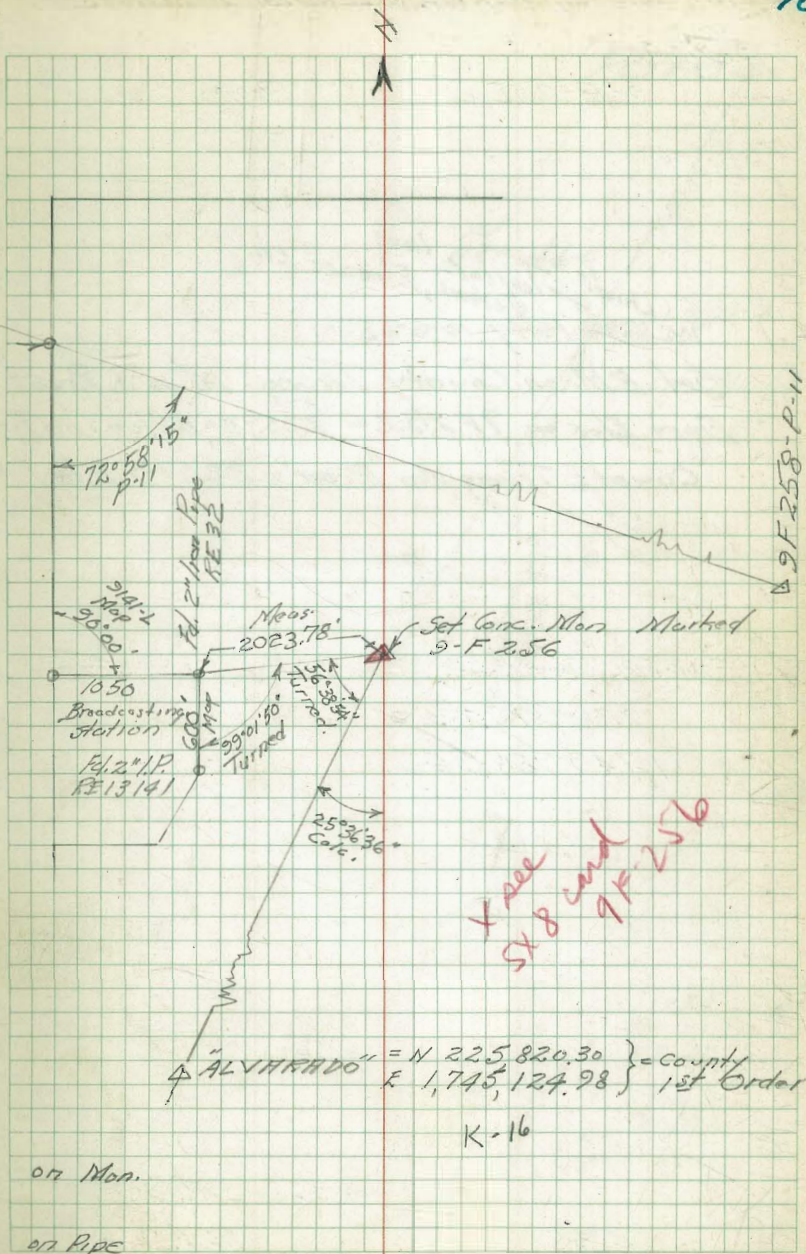 N
72°58'15"
P-11
Fd. 2" Iron Pipe
RE 32
9F 258-P-11
9141-L
Map
90°00'
Meas.
2023.78'
Set Conc. Mon Marked
9-F 256
1050
Broadcasting
Station
600'
Map
99°01'50"
Turned
56°38'54"
Turned.
Fd. 2" I.P.
RE 13141
25°36'36"
Calc.
x see
5x8 card
9F 256
"ALVARADO" = N 225,820.30 } = County
E 1,745,124.98 } 1st Order
K-16
on Mon.
on Pipe